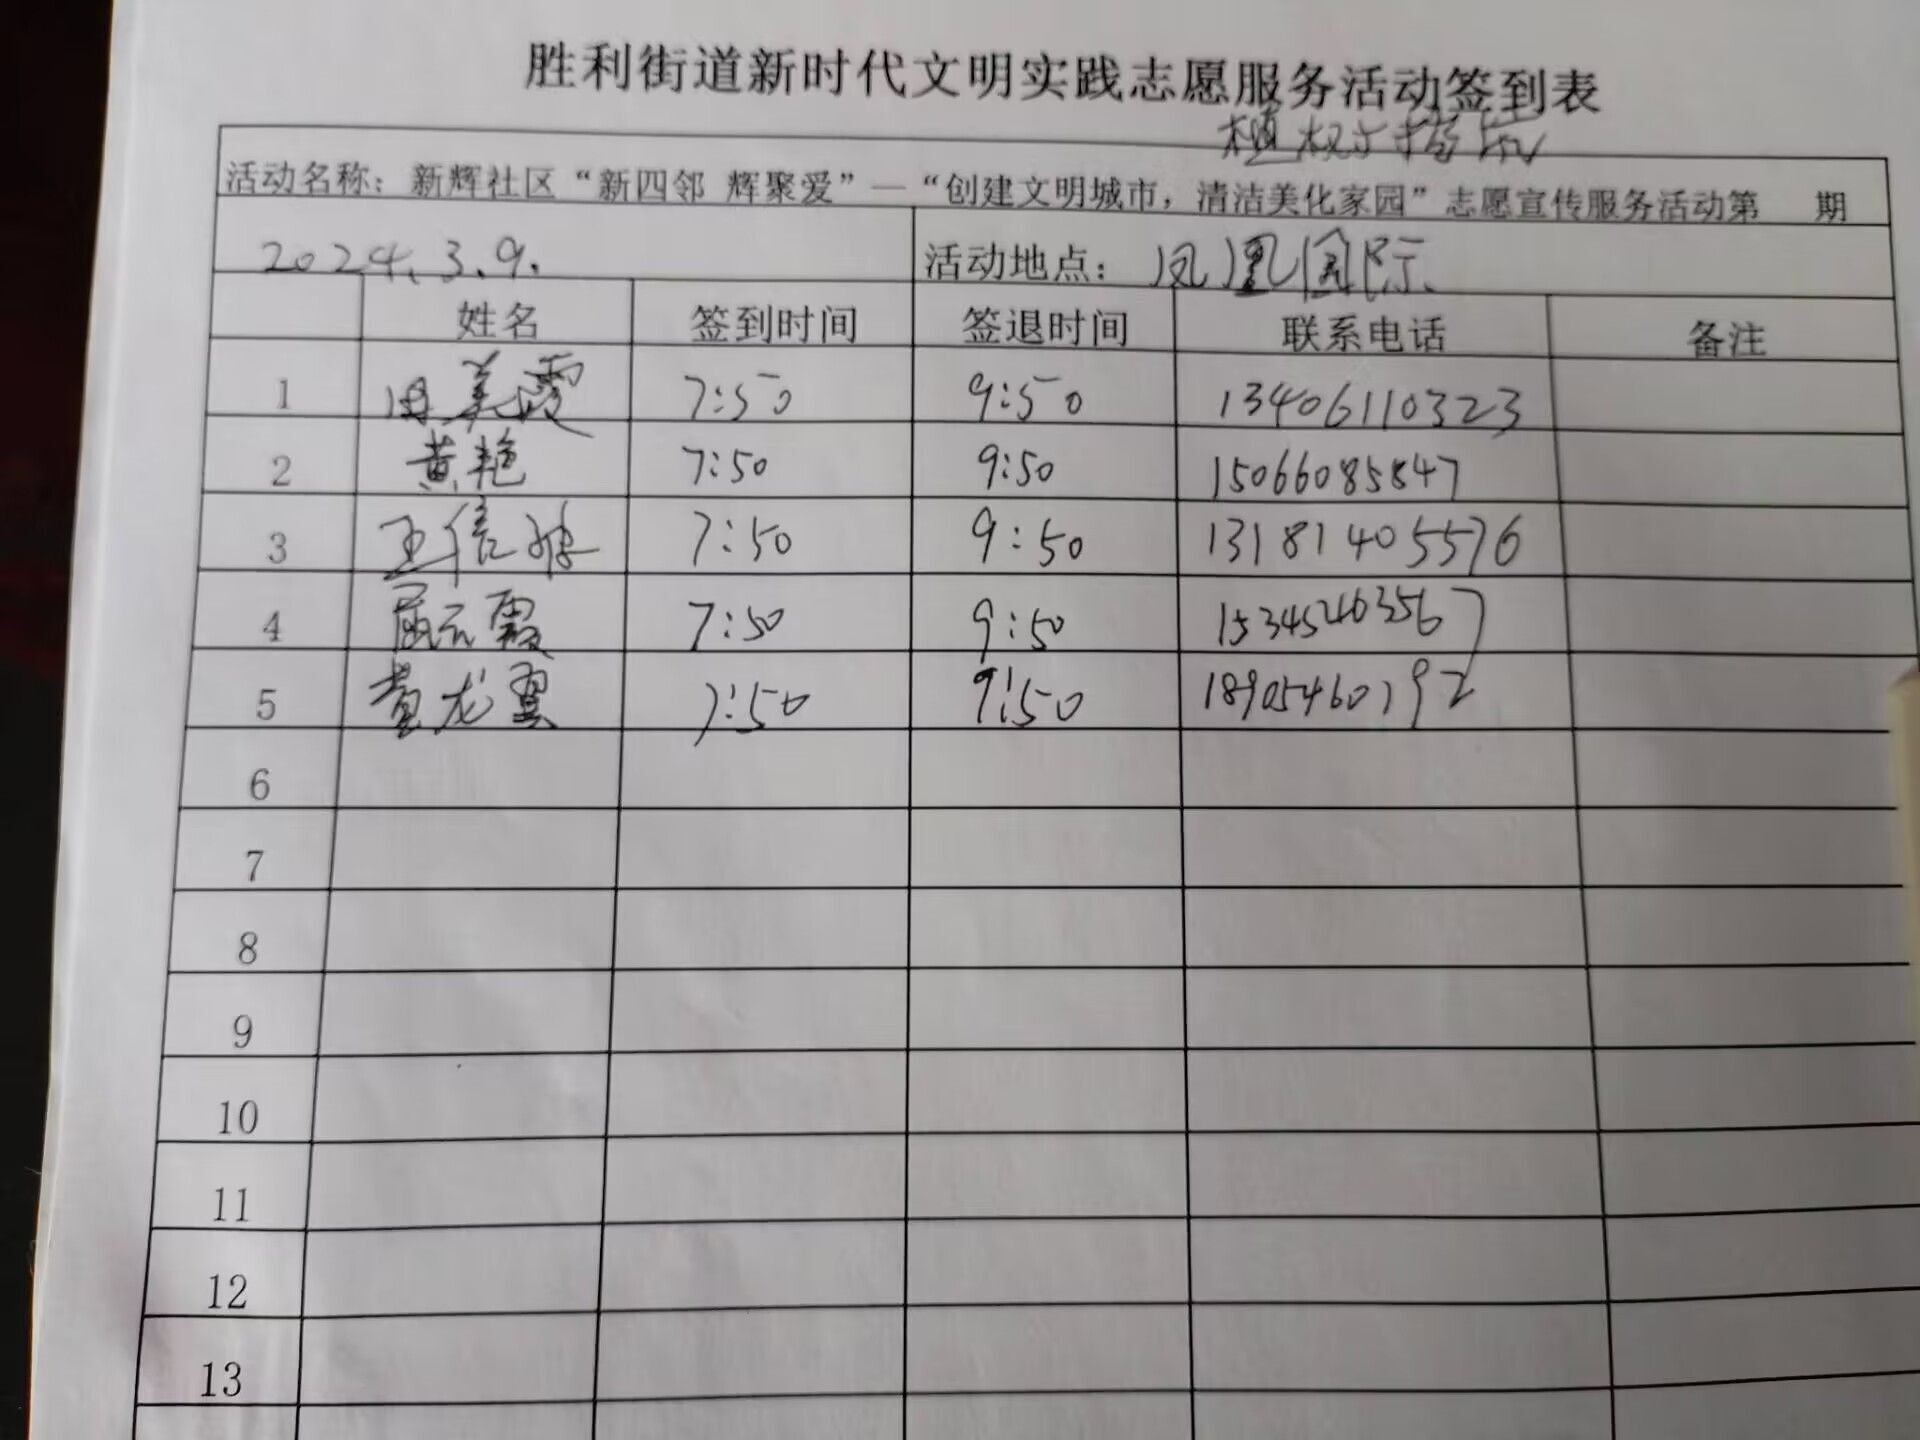 胜利街道新时代文明实践志愿服务活动签到表
植树
活动名称：新辉社区“新四邻 辉聚爱”—“创建文明城市，清洁美化家园”志愿宣传服务活动第 期
2024.3.9. 活动地点：凤凰国际
姓名 签到时间 签退时间 联系电话 备注
1 美霞 7:50 9:50 13406110323
2 黄艳 7:50 9:50 15066085847
3 王信 7:50 9:50 13181405576
4 霞 7:50 9:50 15345463567
5 龙翼 7:50 9:50 18905460792
6
7
8
9
10
11
12
13